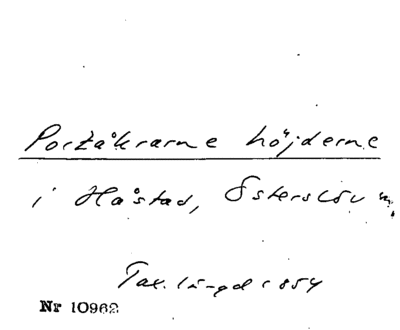 Portåkrarne höjderne
i Håstad, Österslöv m.
Tax. längd 1854
Nr 10962